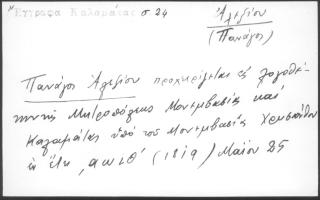 Ἔγγραφα Καλαμάτας σ. 24
Ἀλεξίου
(Πανάγος)
Πανάγος Ἀλεξίου προχειρίζεται εἰς λογοθέ-
την τῆς Μητροπόλεως Μονεμβασίας καὶ
Καλαμάτας ὑπὸ τοῦ Μονεμβασίας Χρυσάνθου
ἐν ἔτει ͵αωιθ' (1819) Μαΐου 25